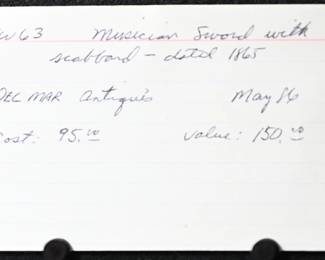 63 Musician Sword with
scabbard - dated 1865
DEL MAR Antiques May 86
Cost: 95.00 value: 150.00